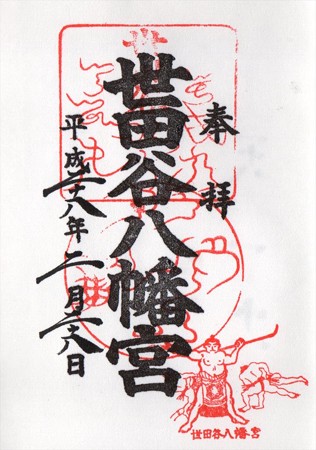 奉拝
世田谷八幡宮
平成二十八年二月二十八日
世田谷八幡宮